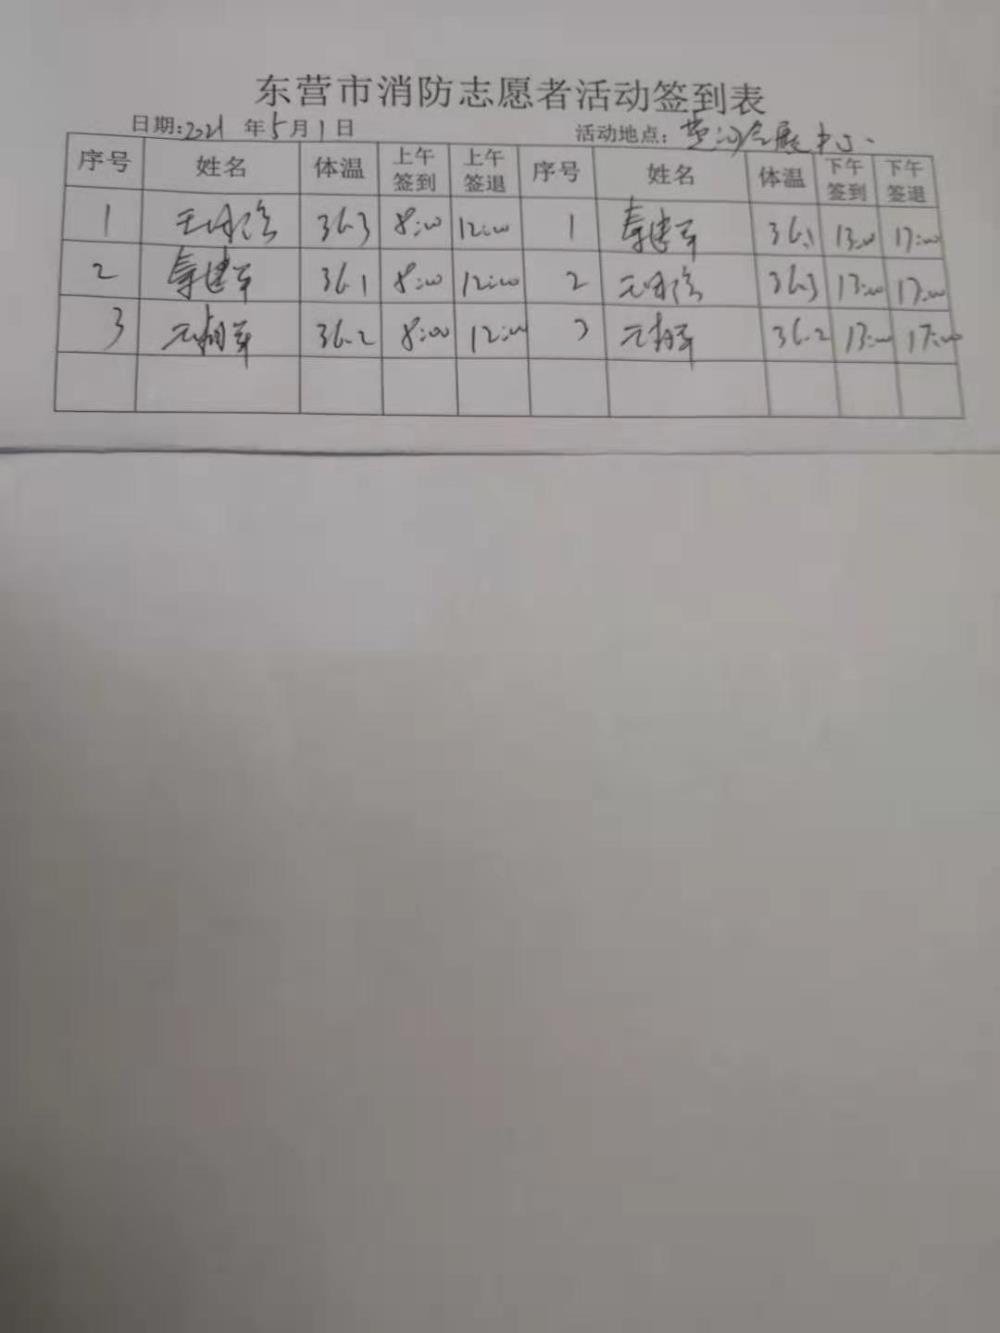 东营市消防志愿者活动签到表
日期:2021年5月1日 活动地点：黄河会展中心
序号 姓名 体温 上午签到 上午签退 序号 姓名 体温 下午签到 下午签退
1 36.3 8:00 12:00 1 秦建军 36.1 13:00 17:00
2 秦建军 36.1 8:00 12:00 2 36.3 13:00 17:00
3 36.2 8:00 12:00 3 36.2 13:00 17:00